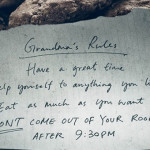 Grandma's Rules
Have a great time
elp yourself to anything you li
Eat as much as you want
ONT COME OUT OF YOUR ROO
AFTER 9:30PM